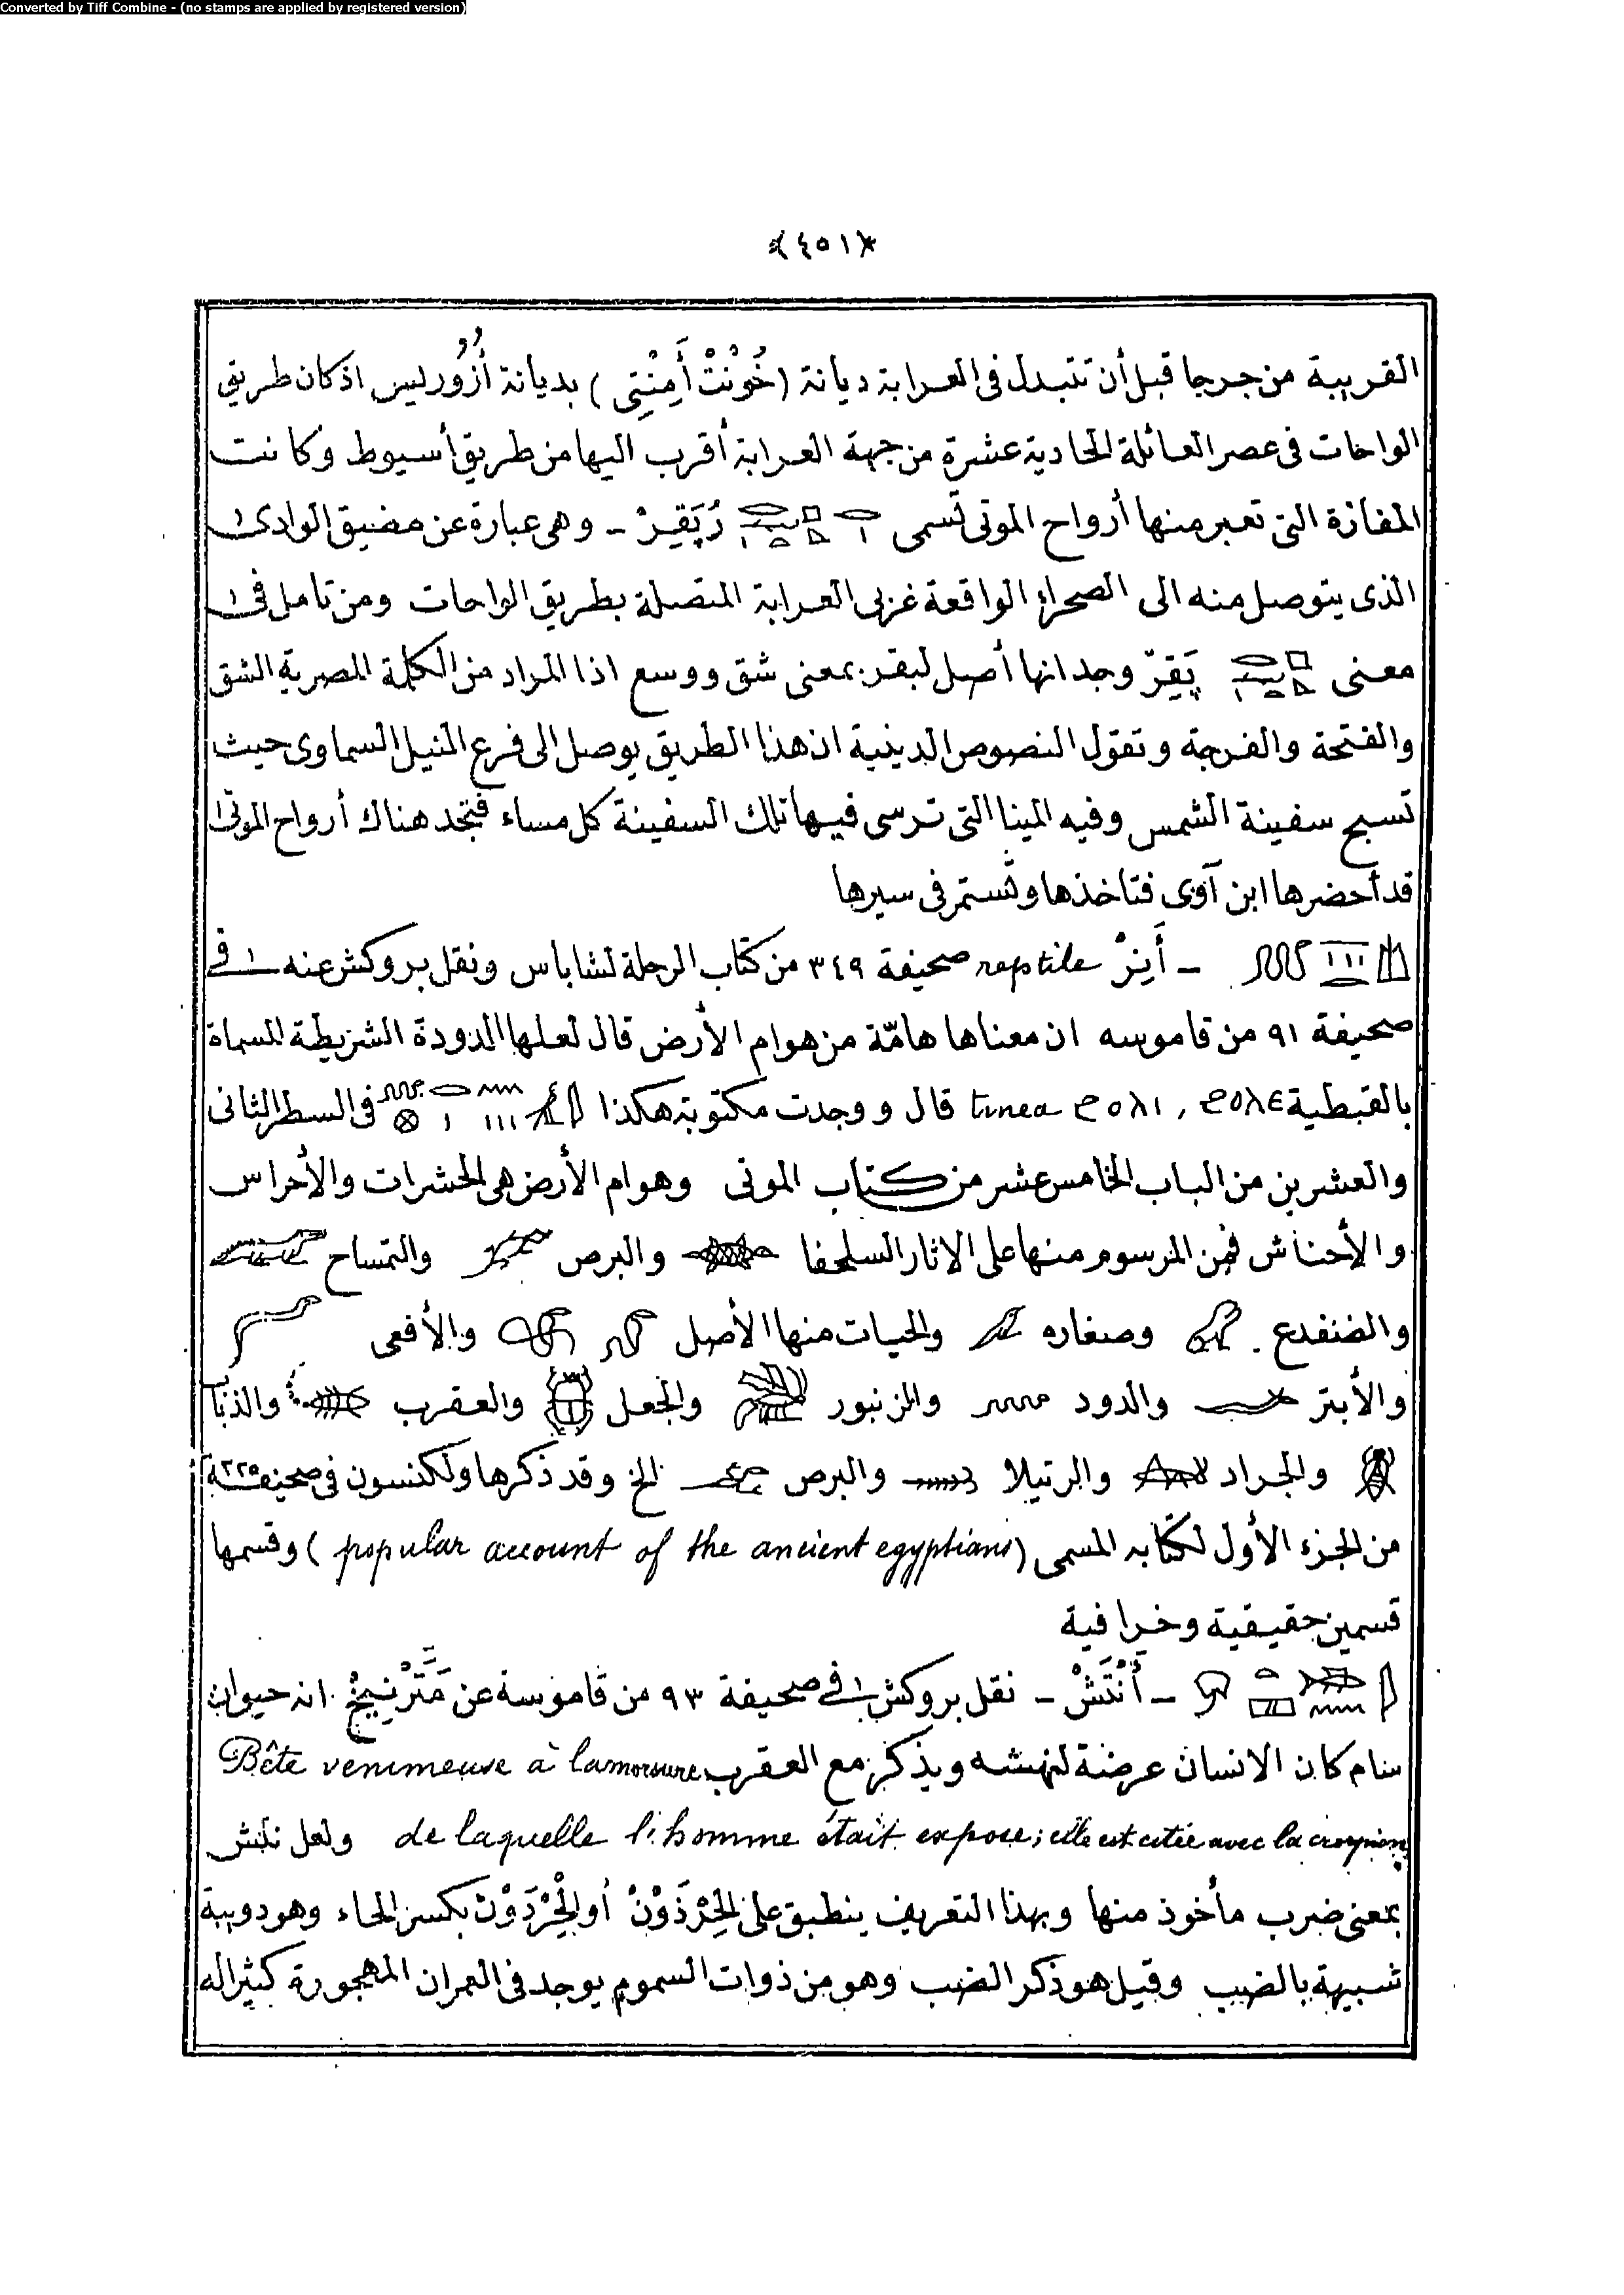 Converted by Tiff Combine - (no stamps are applied by registered version)
﴿٤٥١﴾
القريبة من جرجا قبل أن تتبدل فى العرابة ديانة (خُونْتْ أَمِنْتِى) بديانة أُزُوريس اذ كان طريق
الواحات فى عصر العائلة الحادية عشرة من جهة العرابة أقرب اليها من طريق أسيوط وكانت
المفازة التى تعبر منها أرواح الموتى تسمى رُبَقِرْ ـ وهى عبارة عن مضيق الوادى
الذى يتوصل منه الى الصحراء الواقعة غربى العرابة المتصلة بطريق الواحات ومن تامل فى
معنى پَقِرّ وجد انها أصل لبقر بمعنى شق ووسع اذا المراد من الكلمة المصرية الشق
والفتحة والفرجة وتقول النصوص الدينية ان هذا الطريق يوصل الى فرع النيل السماوى حيث
تسبح سفينة الشمس وفيه المينا التى ترسى فيها تلك السفينة كل مساء فتجد هناك أرواح الموتى
قد أحضرها ابن آوى فتاخذها وتستمر فى سيرها
ـ أَيِرْ reptile صحيفة ٣٤٩ من كتاب الرحلة لشاباس ونقل بروكش عنه فى
صحيفة ٩١ من قاموسه ان معناها هامّة من هوام الأرض قال لعلها الدودة الشريطة المسماة
بالقبطية ϩⲟⲗⲉ , ϩⲟⲗⲓ tinea قال ووجدت مكتوبة هكذا فى السطر الثانى
والعشرين من الباب الخامس عشر من كتاب الموتى وهوام الأرض هى الحشرات والأحراس
والأحناش فمن المرسوم منها على الاثار السلحفا والبرص والتمساح
والضفدع وصغاره والحيات منها الأصل والأفعى
والأبتر والدود والزنبور والجعل والعقرب والذبا
والجراد والرتيلا والبرص الخ وقد ذكرها ولكنسون فى صحيفة ٢٢٥
من الجزء الأول لكتابه المسمى (popular account of the ancient egyptians) وقسمها
قسمين حقيقية وخرافية
ـ أَنْتَشْ ـ نقل بروكش فى صحيفة ٩٣ من قاموسة عن انه حيوان
سام كان الانسان عرضة لنهشه ويذكر مع العقرب Bête venimeuse à la morsure
de laquelle l'homme était expose; elle est citée avec la ولعل نتش
بمعنى ضرب مأخوذ منها وبهذا التعريف ينطبق على الحِرْذَوْنْ أو الحِرْدَوْنْ بكسر الحاء وهو دويبة
شبيهة بالضب وقيل هو ذكر الضب وهو من ذوات السموم يوجد فى العمران المهجورة كثيرا له